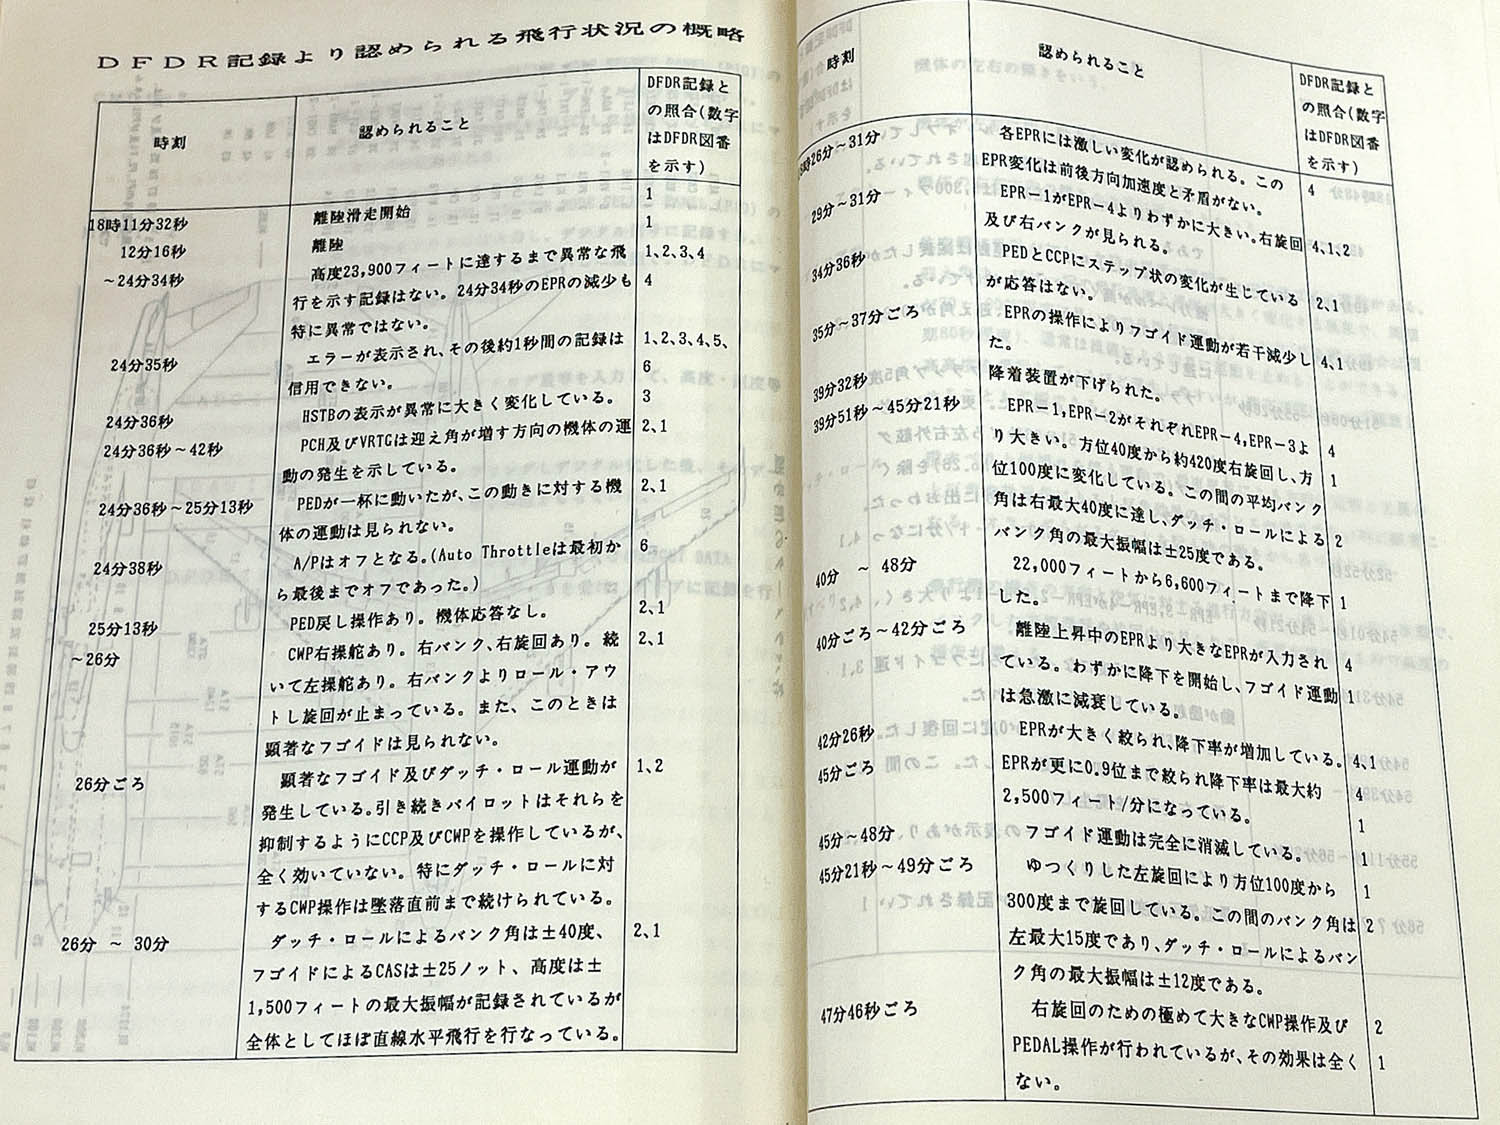 DFDR記録より認められる飛行状況の概略
時刻
認められること
DFDR記録と
の照合(数字
はDFDR図番
を示す)
1
18時11分32秒
離陸滑走開始
1
12分16秒
離陸
1,2,3,4
~24分34秒
高度23,900フィートに達するまで異常な飛
行を示す記録はない。24分34秒のEPRの減少も
4
特に異常ではない。
24分35秒
エラーが表示され、その後約1秒間の記録は
1,2,3,4,5,
信用できない。
6
24分36秒
HSTBの表示が異常に大きく変化している。
3
24分36秒~42秒
PCH及びVRTGは迎え角が増す方向の機体の運
2,1
動の発生を示している。
24分36秒~25分13秒
PEDが一杯に動いたが、この動きに対する機
2,1
体の運動は見られない。
24分38秒
A/Pはオフとなる。(Auto Throttleは最初か
6
ら最後までオフであった。)
25分13秒
PED戻し操作あり。機体応答なし。
2,1
~26分
CWP右操舵あり。右バンク、右旋回あり。続
2,1
いて左操舵あり。右バンクよりロール・アウ
トし旋回が止まっている。また、このときは
顕著なフゴイドは見られない。
26分ごろ
顕著なフゴイド及びダッチ・ロール運動が
1,2
発生している。引き続きパイロットはそれらを
抑制するようにCCP及びCWPを操作しているが、
全く効いていない。特にダッチ・ロールに対
するCWP操作は墜落直前まで続けられている。
26分 ~ 30分
ダッチ・ロールによるバンク角は±40度、
2,1
フゴイドによるCASは±25ノット、高度は±
1,500フィートの最大振幅が記録されているが
全体としてほぼ直線水平飛行を行なっている。
時刻
認められること
DFDR記録と
の照合(数字
はDFDR図番
を示す)
時26分~31分
各EPRには激しい変化が認められる。この
4
EPR変化は前後方向加速度と矛盾がない。
29分~31分
EPR-1がEPR-4よりわずかに大きい。右旋回
4,1,2
及び右バンクが見られる。
34分36秒
PEDとCCPにステップ状の変化が生じている
2,1
が応答はない。
35分~37分ごろ
EPRの操作によりフゴイド運動が若干減少し
4,1
た。
39分32秒
降着装置が下げられた。
39分51秒~45分21秒
EPR-1,EPR-2がそれぞれEPR-4,EPR-3よ
4
り大きい。方位40度から約420度右旋回し、方
1
位100度に変化している。この間の平均バンク
角は右最大40度に達し、ダッチ・ロールによる
2
バンク角の最大振幅は±25度である。
40分 ~ 48分
22,000フィートから6,600フィートまで降下
1
した。
40分ごろ~42分ごろ
離陸上昇中のEPRより大きなEPRが入力され
4
ている。わずかに降下を開始し、フゴイド運動
1
は急激に減衰している。
42分26秒
EPRが大きく絞られ、降下率が増加している。
4,1
45分ごろ
EPRが更に0.9位まで絞られ降下率は最大約
4
2,500フィート/分になっている。
1
45分~48分
フゴイド運動は完全に消滅している。
1
45分21秒~49分ごろ
ゆつくりした左旋回により方位100度から
1
300度まで旋回している。この間のバンク角は
2
左最大15度であり、ダッチ・ロールによるバン
ク角の最大振幅は±12度である。
47分46秒ごろ
右旋回のための極めて大きなCWP操作及び
2
PEDAL操作が行われているが、その効果は全く
1
ない。